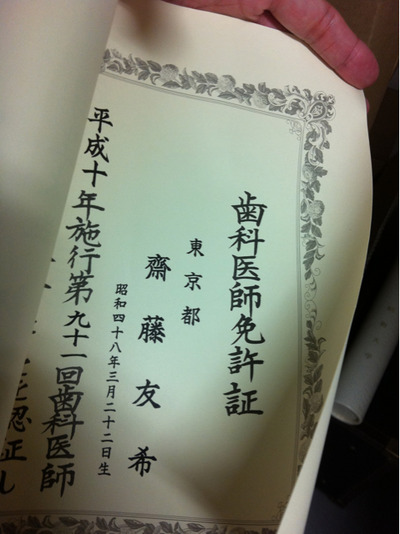 歯科医師免許証
東京都
齋藤友希
昭和四十八年三月二十二日生
平成十年施行第九十一回歯科医師
認証し